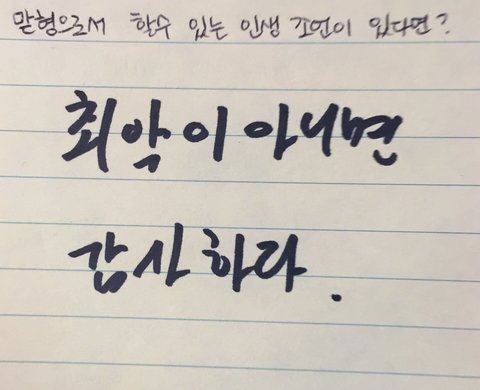 맏형으로서 할수 있는 인생 조언이 있다면?
최악이 아니면
감사 하라.